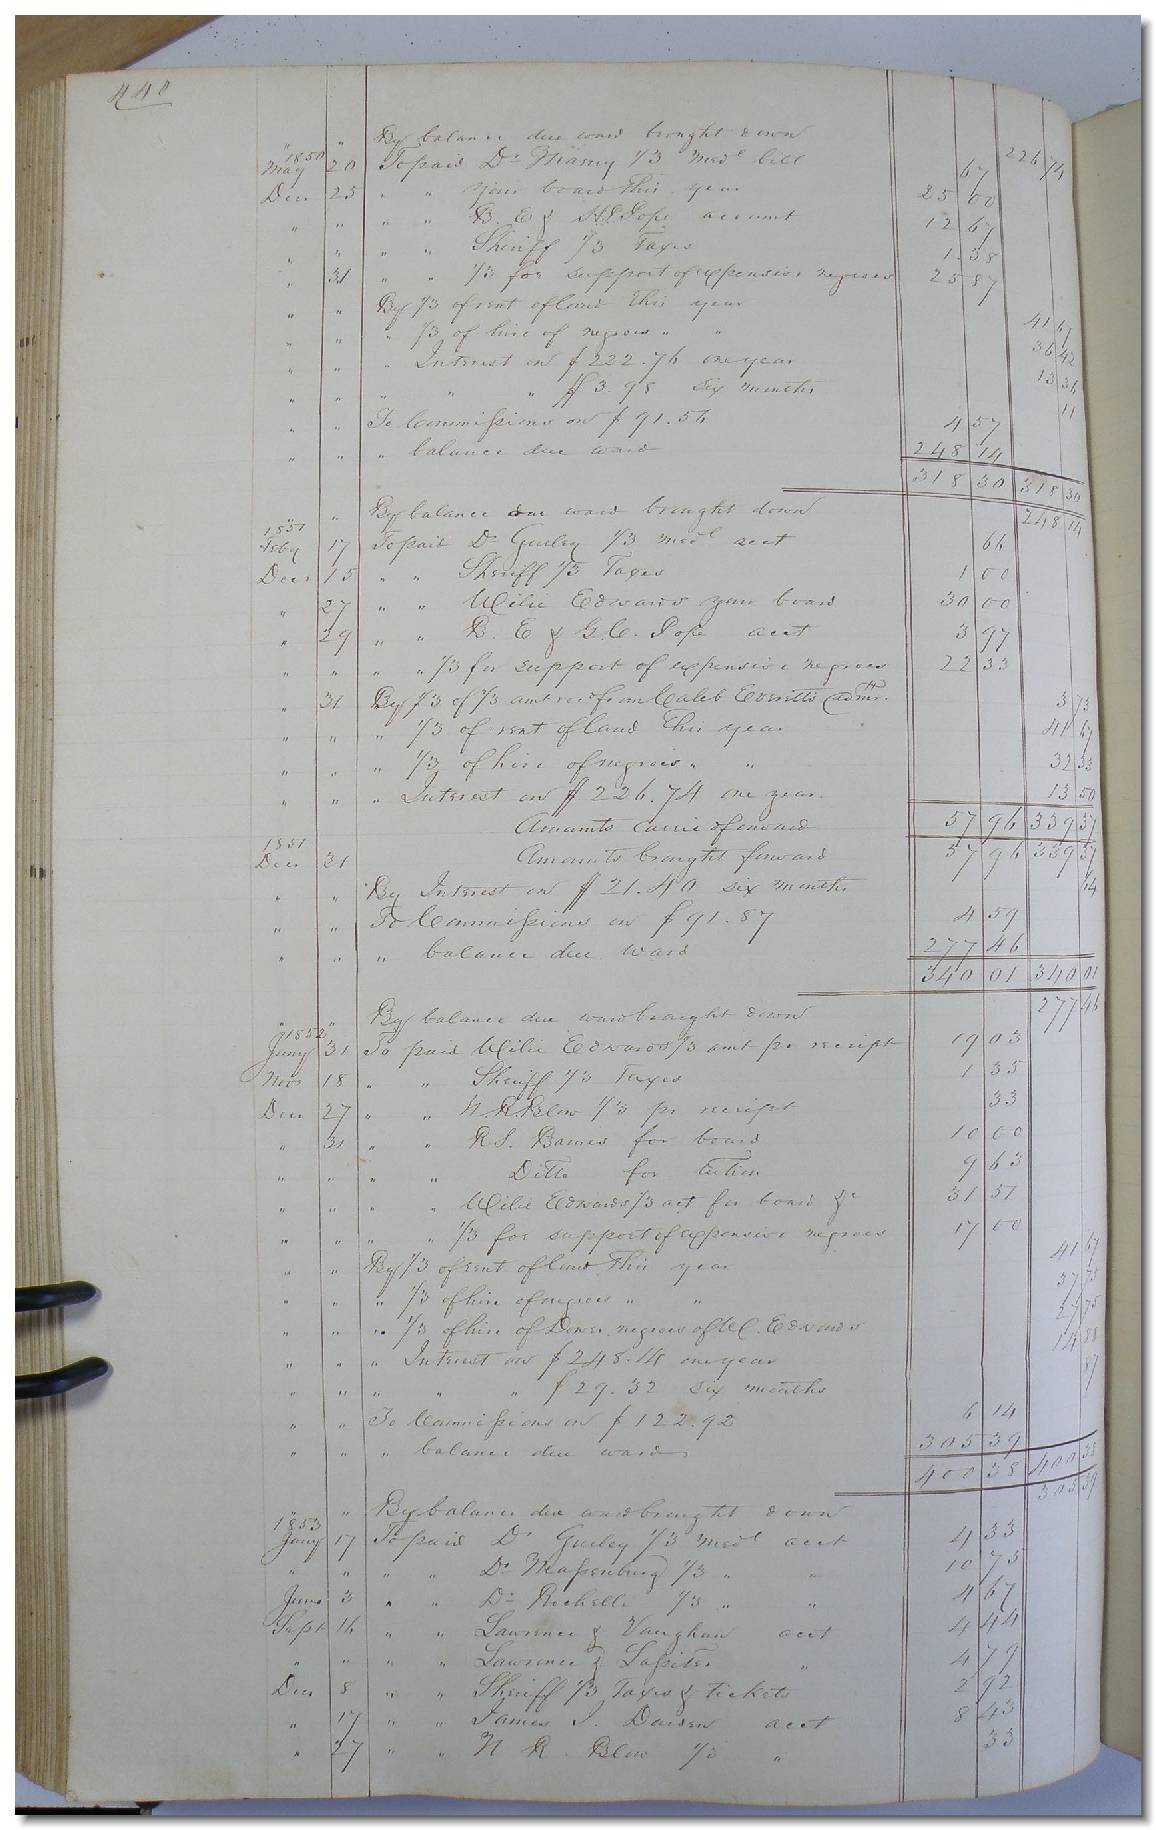 440
" " By balance due ward brought down 226 74
1850 May 20 To paid Dr Massey 1/3 medl bill 67
Decr 25 " " your board this year 25 00
" " " " B. E & H E Pope account 12 67
" " " " Sheriff 1/3 Taxes 1 38
" 31 " " 1/3 for support of expensive negroes 25 87
" " By 1/3 of rent of land this year 41 67
" " " 1/3 of hire of negroes " " 36 42
" " " Interest on $222.76 one year 13 36
" " " " " $3.98 six months 11
" " To Commissions on $91.56 4 57
" " " balance due ward 248 14
318 30 318 30
" " By balance due ward brought down 248 14
1851 Feby 17 To paid Dr Gurley 1/3 medl acct 66
Decr 15 " " Sheriff 1/3 Taxes 1 00
" 27 " " Wilie Edwards your board 30 00
" 29 " " B. E & G.C. Pope acct 3 97
" " " " 1/3 for support of expensive negroes 22 33
" 31 By 1/3 of 1/3 amt recd from Caleb Everitts admr. 3 73
" " " 1/3 of rent of land this year 41 67
" " " 1/3 of hire of negroes " " 32 33
" " " Interest on $226.74 one year 13 50
Amounts carried forward 57 96 339 37
1851 Decr 31 Amounts brought forward 57 96 339 37
" " By Interest on $21.40 six months 64
" " To Commissions on $91.87 4 59
" " " balance due ward 277 46
340 01 340 01
" " By balance due ward brought down 277 46
1852 Jany 31 To paid Wilie Edwards 1/3 amt pr receipt 19 03
Novr 18 " " Sheriff 1/3 Taxes 1 35
Decr 27 " " N. R. Blow 1/3 pr receipt 33
" 31 " " R S. Barnes for board 10 00
" " " " Ditto for tution 9 63
" " " " Wilie Edwards 1/3 act for board &c 31 51
" " " " 1/3 for support of expensive negroes 17 00
" " By 1/3 of rent of land this year 41 67
" " " 1/3 of hire of negroes " " 37 75
" " " 1/3 of hire of Dower negroes of W. Edwards 27 75
" " " Interest on $248.14 one year 14 88
" " " " " $29.32 six months 87
" " To Commissions on $122.92 6 14
" " " balance due ward 305 39
400 38 400 38
" " By balance due ward brought down 305 39
1853 Jany 17 To paid Dr Gurley 1/3 medl acct 4 33
" " " " Dr Massenburg 1/3 " " 10 75
June 3 " " Dr Rochelle 1/3 " " 4 67
Sept 16 " " Lawrence & Vaughan acct 4 44
" " " " Lawrence & Lassiter " 4 79
Decr 8 " " Sheriff 1/3 Taxes & tickets 2 92
" 17 " " James J. Darden acct 8 43
" 27 " " N R. Blow 1/3 " 33